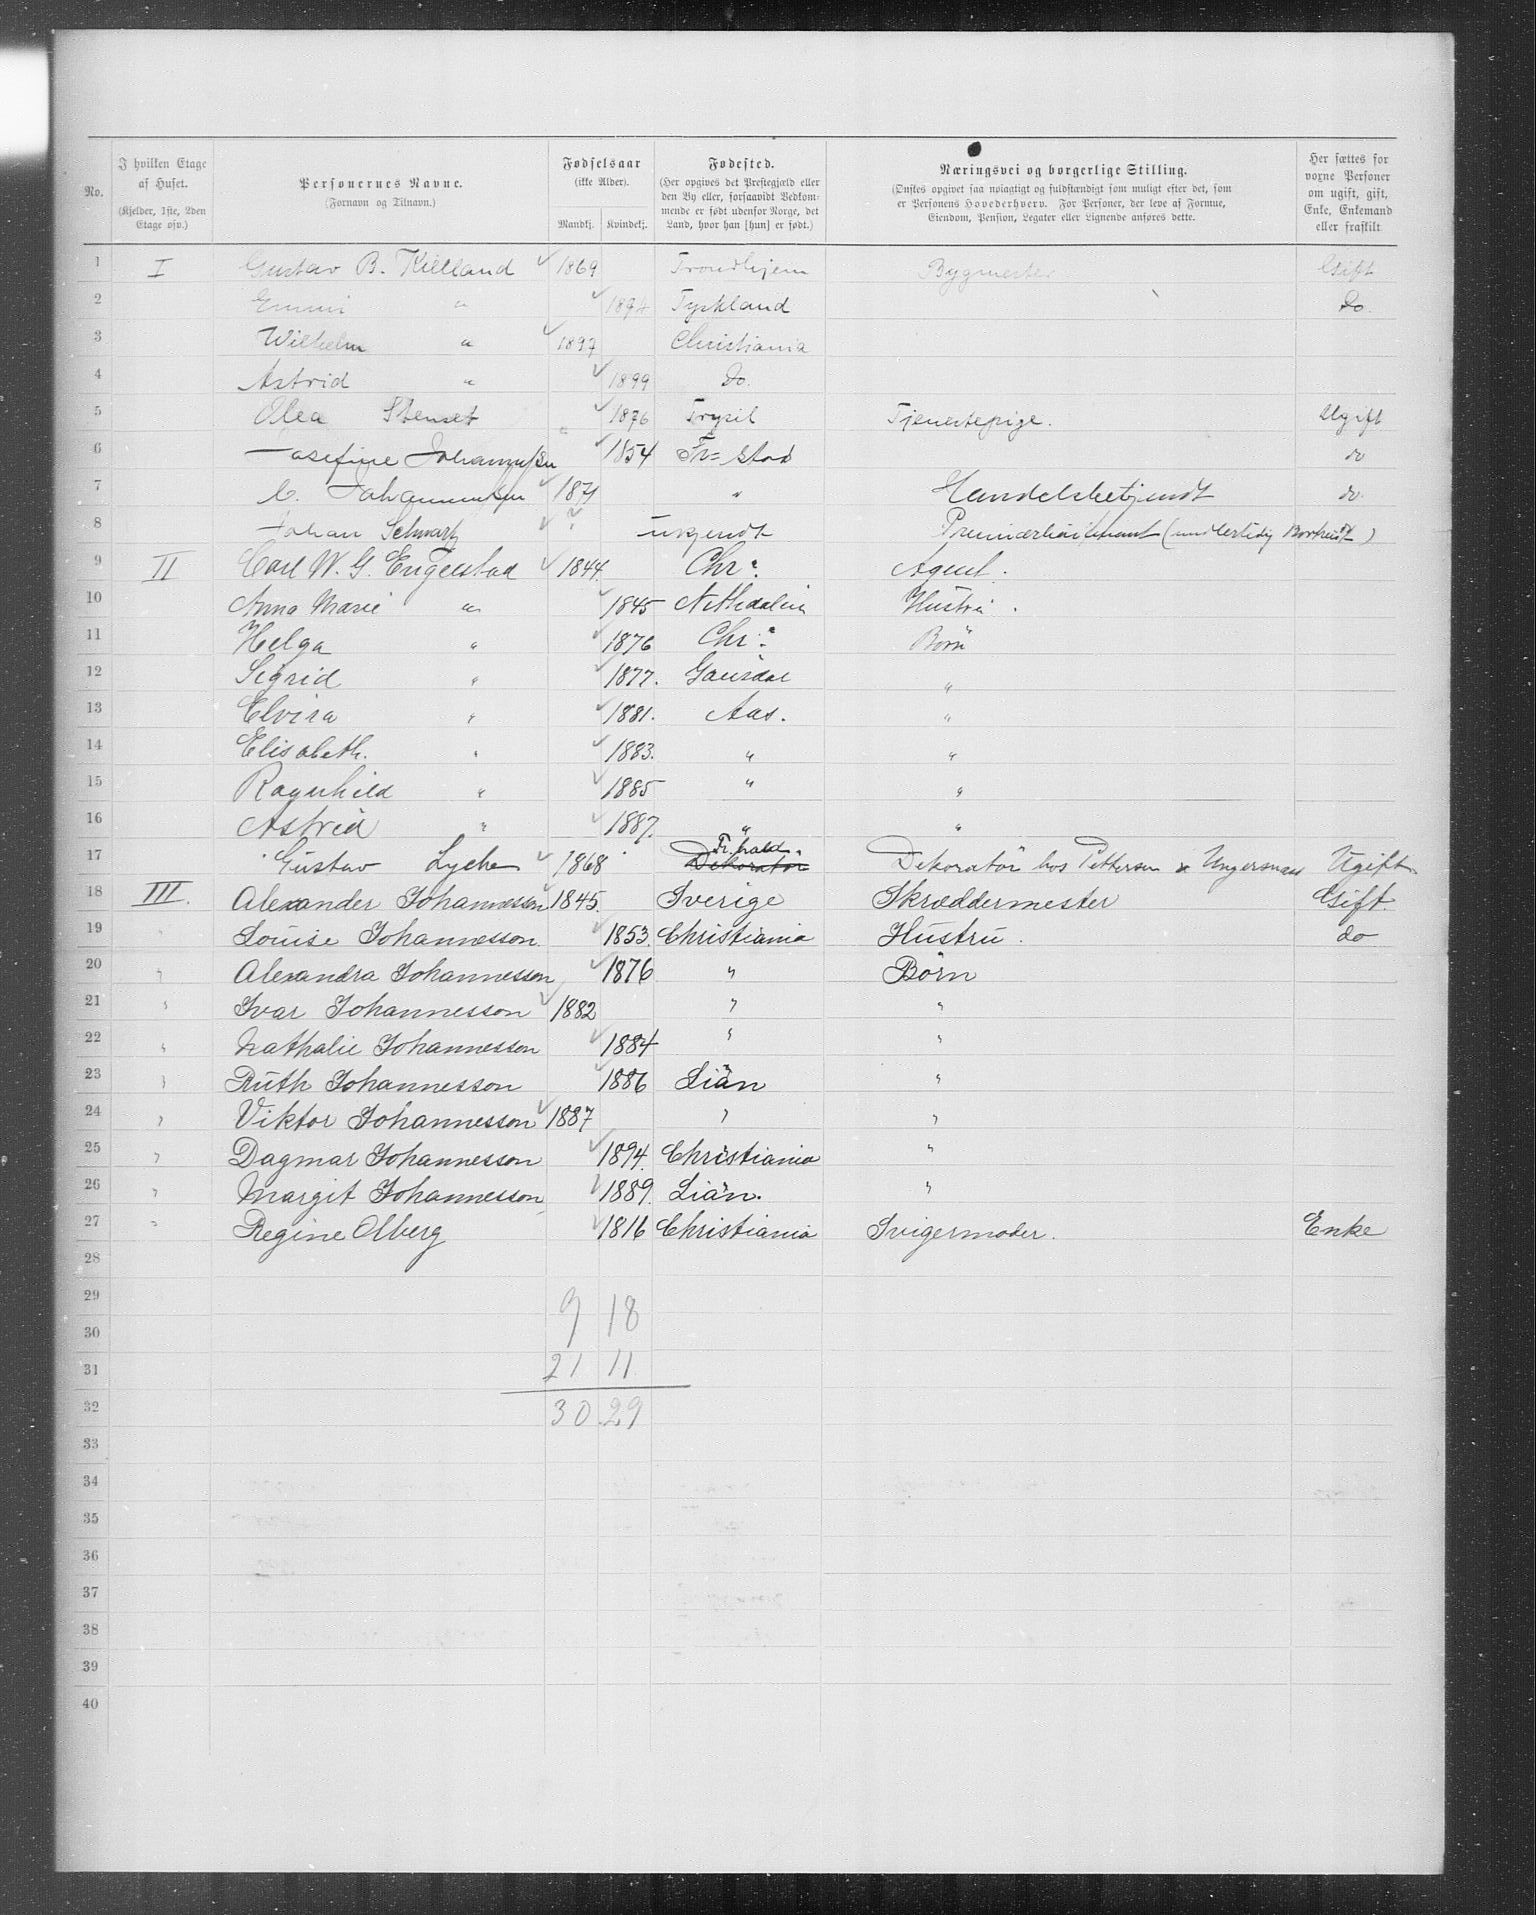 No.
I hvilken Etage af Huset.
(Kjelder, 1ste, 2den Etage osv.)
Personernes Navne.
(Fornavn og Tilnavn.)
Fødselsaar
(ikke Alder).
Mandkj. Kvindekj.
Fødested.
(Her opgives det Prestegjæld eller den By eller, forsaavidt Vedkommende er født udenfor Norge, det Land, hvor han [hun] er født.)
Næringsvei og borgerlige Stilling.
(Ønskes opgivet saa nøiagtigt og fuldstændigt som muligt efter det, som er Personens Hovederhverv. For Personer, der leve af Formue, Eiendom, Pension, Legater eller Lignende anføres dette.
Her sættes for voxne Personer om ugift, gift, Enke, Enkemand eller fraskilt
1 I Gustav B. Kielland 1869 Trondhjem Bygmester Gift
2 Emmi " 1894 Tyskland Do.
3 Wilhelm " 1897 Christiania
4 Astrid " 1899 Do.
5 Olea Stenset 1876 Trysil Tjenestepige. Ugift
6 Josefine Johannessen 1854 Fr=stad do
7 C. Johannessen 1871 " Handelsbetjendt do.
8 Johan Schwartz ? ukjendt Premierløitenant (midlertidig Bortreist)
9 II Carl W. G. Engelstad 1844 Chr: Agent.
10 Anna Marie " 1845 Nithedalen Hustru.
11 Helga " 1876 Chr: Børn
12 Sigrid " 1877. Gausdal "
13 Elvira " 1881. Aas. "
14 Elisabeth. " 1883. " "
15 Ragnhild " 1885 " "
16 Astrid " 1887. " "
17 Gustav Lyche 1868 Dekoratør Fr.hald Dekoratør hos Pettersen & Ugift
18 III. Alexander Johannesson 1845. Sverige Skræddermester Gift.
19 " Louise Johannesson. 1853. Christiania Hustru. do
20 " Alexandra Johannesson 1876 " Børn
21 " Ivar Johannesson 1882 " "
22 " Nathalie Johannesson 1884 " "
23 " Ruth Johannesson 1886 Lian "
24 " Viktor Johannesson 1887 " "
25 " Dagmar Johannesson 1894. Christiania "
26 " Margit Johannesson 1889. Lian. "
27 " Regine Olberg 1816 Christiania Svigermoder. Enke
28
29
9 18
30
31 21 11
32 30. 29
33
34
35
36
37
38
39
40